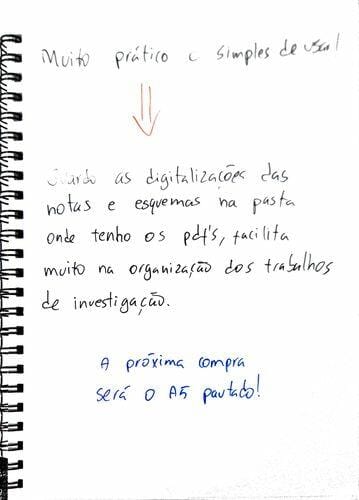 Muito prático e simples de usar!
Guardo as digitalizações das
notas e esquemas na pasta
onde tenho os pdf's, facilita
muito na organização dos trabalhos
de investigação.
A próxima compra
será o A5 pautado!